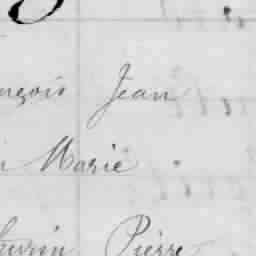 nçois Jean
Marie
Pierre